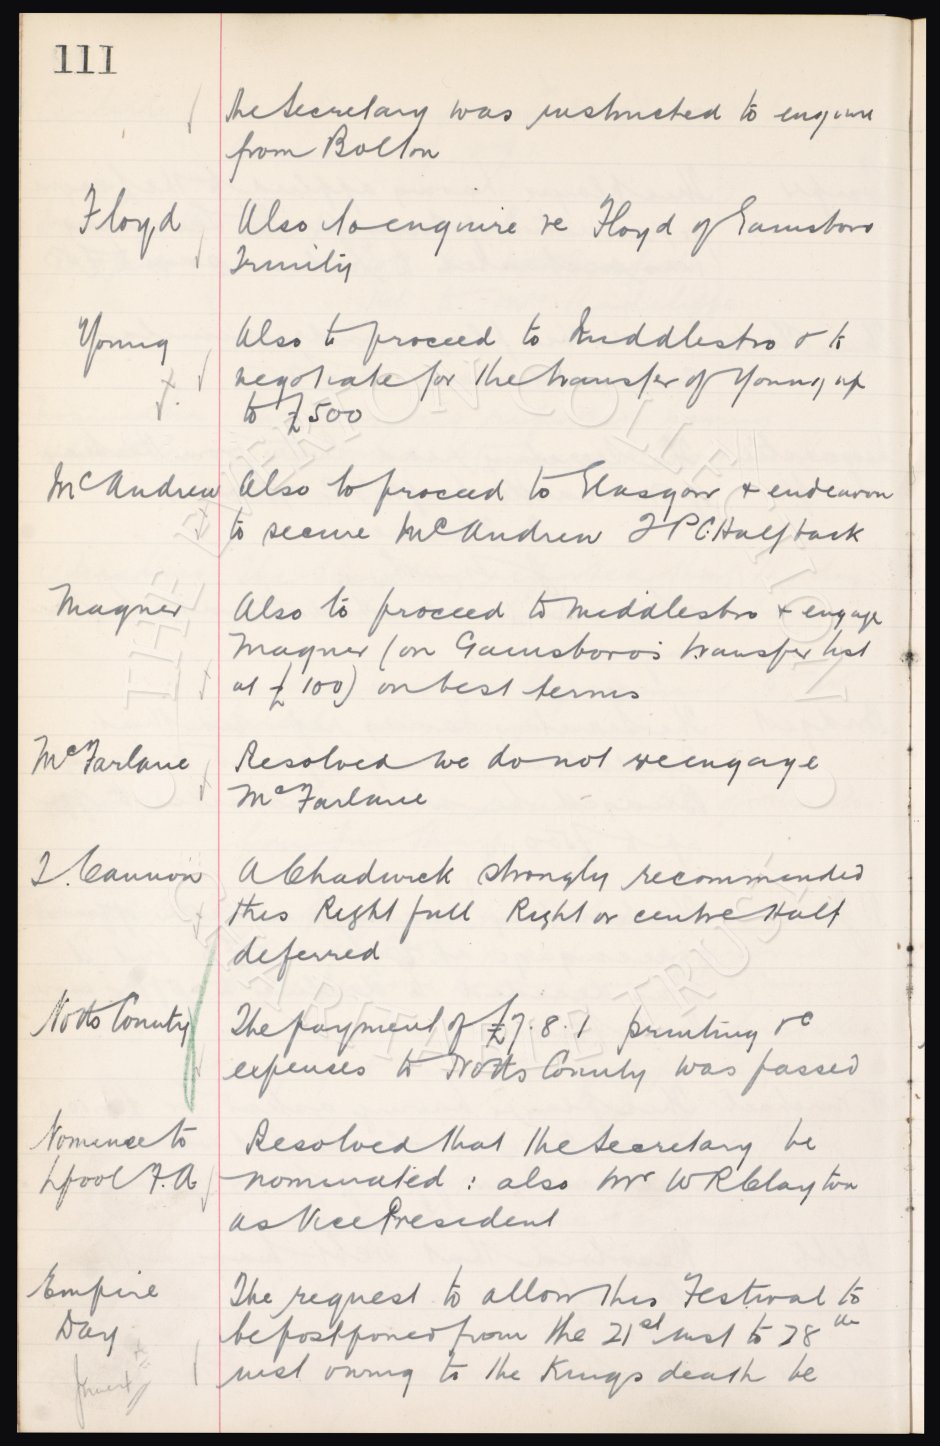 111
the Secretary was instructed to enquire
from Bolton
Floyd
Also to enquire re Floyd of Gainsboro
Trinity
Young
Also to proceed to Middlesbro & to
negotiate for the transfer of Young up
to £500
McAndrew
Also to proceed to Glasgow & endeavour
to secure McAndrew Half back
Magner
Also to proceed to Middlesbro & engage
Magner (on Gainsboro's transfer list
at £100) on best terms
McFarlane
Resolved we do not reengage
McFarlane
T. Cannon
A Chadwick strongly recommended
this Right full Right or centre Half
deferred
Notts County
The payment of £7.8.1 printing &c
expenses to Notts County was passed
Nominee to
Lpool F.A
Resolved that the Secretary be
nominated : also Mr W R Clayton
as Vice President
Empire
Day
The request to allow this Festival to
be postponed from the 21st inst to 28th
inst owing to the Kings death be
THE EVERTON COLLECTION
CHARITABLE TRUST